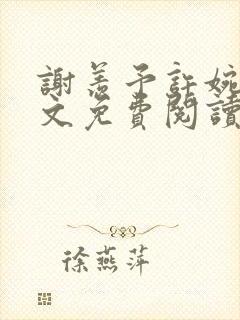 謝恙予許婉
文免費閱讀
徐燕萍